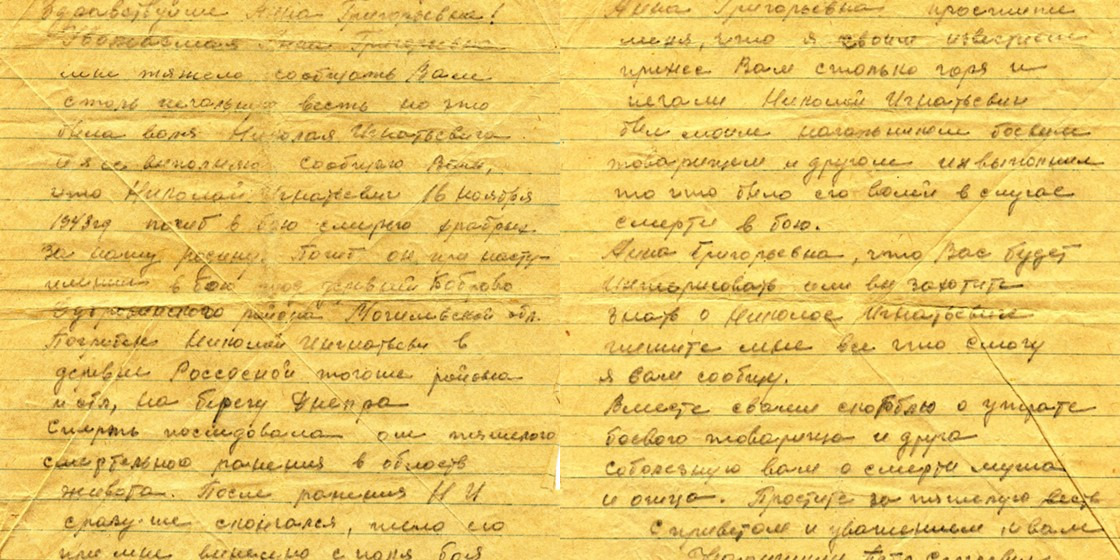 Здравствуйте Анна Григорьевна!
Уважаемая Анна Григорьевна
мне тяжело сообщать Вам
столь печальную весть но это
была воля Николая Игнатьевича
и я ее выполняю сообщаю Вам,
что Николай Игнатьевич 16 ноября
1943 г погиб в бою смертью храбрых
за нашу родину. Погиб он при насту-
плении в бою под деревней Боброво
района Могилевской обл.
Погребен Николай Игнатьевич в
деревне Россосной тогоже района
и обл, на берегу Днепра
Смерть последовала от тяжелого
смертельного ранения в область
живота. После ранения Н И
сразу-же скончался, тело его
при мне вынесено с поля боя
Анна Григорьевна простите
меня, что я своим известием
принес Вам столько горя и
печали Николай Игнатьевич
был моим начальником боевым
товарищем и другом и я выполнил
то что было его волей в случае
смерти в бою.
Анна Григорьевна, что Вас будет
интерисовать если вы захотите
знать о Николае Игнатьевиче
пишите мне все что смогу
я вам сообщу.
Вместе с вами скорблю о утрате
боевого товарища и друга
Соболезную вам о смерти мужа
и отца. Простите за тяжелую весть
с приветом и уважением к вам
Петр